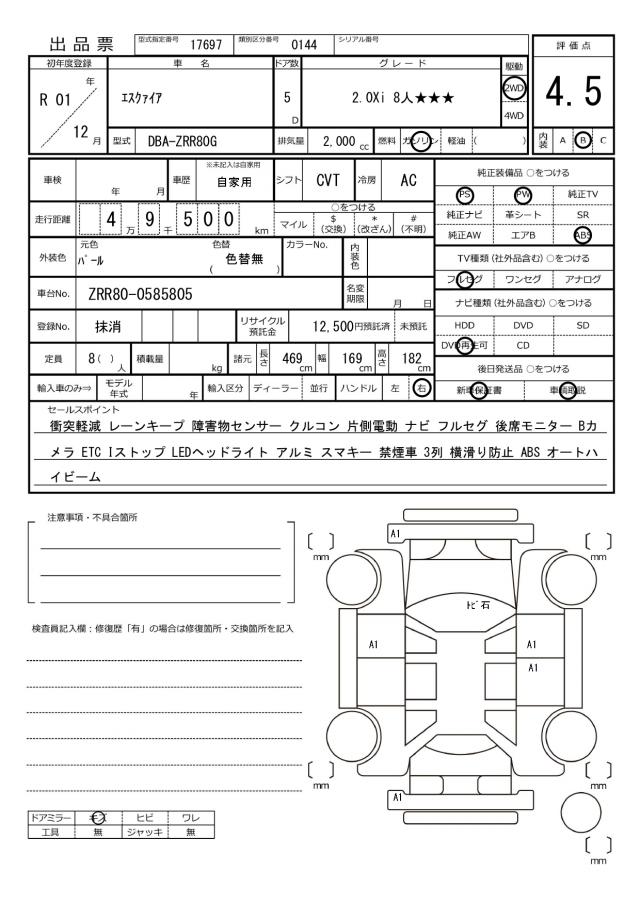 出品票 型式指定番号 17697 類別区分番号 0144 シリアル番号
評価点
4.5
内装 A B C
初年度登録 車名 ドア数 グレード 駆動
R 01 年 12 月 ｴｽｸｧｲｱ 5 D 2.0Xi 8人★★★ 2WD 4WD
型式 DBA-ZRR80G 排気量 2,000 cc 燃料 ガソリン 軽油 ( )
車検 年 月 車歴 ※未記入は自家用 自家用 シフト CVT 冷房 AC
走行距離 4 万 9 千 5 0 0 km
○をつける
マイル $ (交換) * (改ざん) # (不明)
外装色 元色 ﾊﾟｰﾙ 色替 ( 色替無 ) カラーNo. 内装色
車台No. ZRR80-0585805 名変期限 月 日
登録No. 抹消 リサイクル預託金 12,500円預託済 未預託
定員 8 ( ) 人 積載量 kg 諸元 長さ 469 cm 幅 169 cm 高さ 182 cm
輸入車のみ⇒ モデル年式 年 輸入区分 ディーラー 並行 ハンドル 左 右
純正装備品 ○をつける
PS PW 純正TV
純正ナビ 革シート SR
純正AW エアB ABS
TV種類 (社外品含む) ○をつける
フルセグ ワンセグ アナログ
ナビ種類 (社外品含む) ○をつける
HDD DVD SD
DVD再生可 CD
後日発送品 ○をつける
新車保証書 車輌取説
セールスポイント
衝突軽減 レーンキープ 障害物センサー クルコン 片側電動 ナビ フルセグ 後席モニター Bカ
メラ ETC Iストップ LEDヘッドライト アルミ スマキー 禁煙車 3列 横滑り防止 ABS オートハ
イビーム
注意事項・不具合箇所
検査員記入欄：修復歴「有」の場合は修復箇所・交換箇所を記入
ドアミラー キズ ヒビ ワレ
工具 無 ジャッキ 無
A1
[ ] mm
[ ] mm
ﾄﾋﾞ石
A1
A1
A1
[ ] mm
[ ] mm
A1
[ ] mm